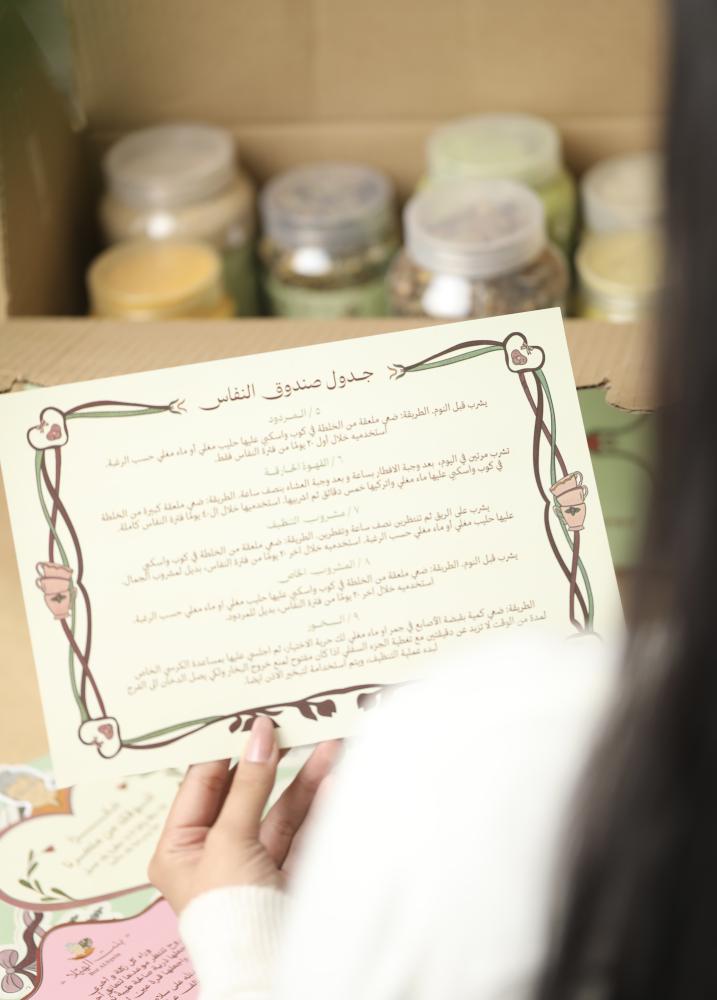 جدول صندوق النفاس
٥ / المردود
يشرب قبل النوم. الطريقة: ضعي ملعقة من الخلطة في كوب واسكبي عليها حليب مغلي أو ماء مغلي حسب الرغبة.
استخدميه خلال أول ٢٠ يومًا من فترة النفاس فقط.
٦ / القهوة الحارقة
تشرب مرتين في اليوم، بعد وجبة الافطار بساعة و بعد وجبة العشاء بنصف ساعة. الطريقة: ضعي ملعقة كبيرة من الخلطة
في كوب واسكبي عليها ماء مغلي واتركيها خمس دقائق ثم اشربيها. استخدميها خلال الـ٤٠ يومًا فترة النفاس كاملة.
٧ / مشروب التنظيف
يشرب على الريق ثم تنتظرين نصف ساعة وتفطرين. الطريقة: ضعي ملعقة من الخلطة في كوب واسكبي
عليها حليب مغلي أو ماء مغلي حسب الرغبة. استخدميه خلال آخر ٢٠ يومًا من فترة النفاس، بديل لمشروب الجمال.
٨ / المشروب الخاص
يشرب قبل النوم. الطريقة: ضعي ملعقة من الخلطة في كوب واسكبي عليها حليب مغلي أو ماء مغلي حسب الرغبة.
استخدميه خلال آخر ٢٠ يومًا من فترة النفاس، بديل للمردود.
٩ / البخور
الطريقة: ضعي كمية بقبضة الأصابع في جمر او ماء مغلي لك حرية الاختيار، ثم اجلسي عليها بمساعدة الكرسي الخاص
لمدة من الوقت لا تزيد عن دقيقتين مع تغطية الجزء السفلي اذا كان مفتوح لمنع خروج البخار ولكي يصل الدخان الى الفرج
لبدء عملية التنظيف، ويتم استخدامة لتبخير الاذن ايضا.